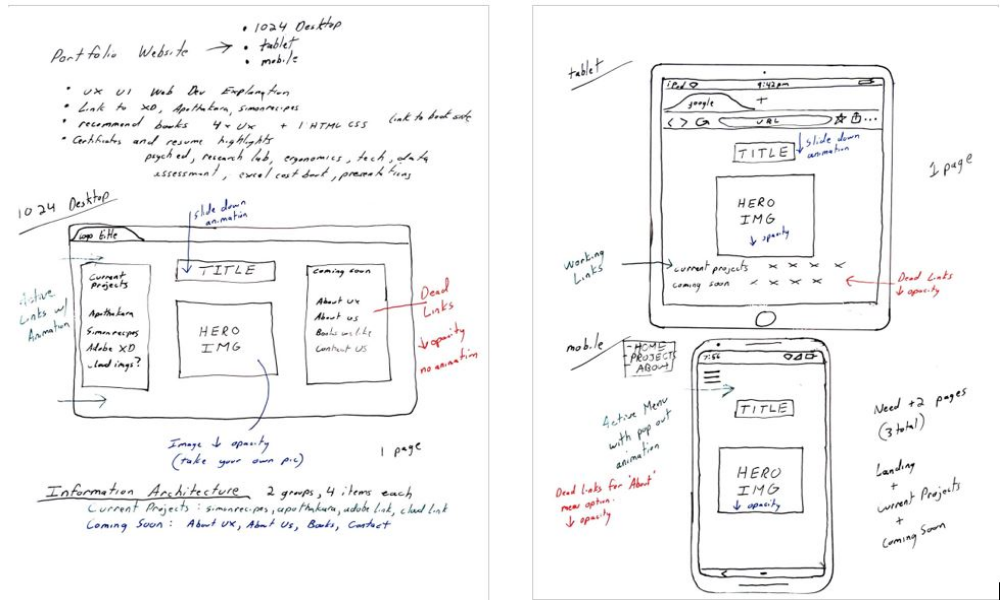 Portfolio Website →
• 1024 Desktop
• tablet
• mobile
• UX UI Web Dev Explanation
• Link to XD, Apothakura, simonrecipes
• recommend books 4x UX + 1 HTML CSS link to book site
• Certificates and resume highlights
psyched, research lab, ergonomics, tech, data
assessment, excel cost book, presentations
1024 Desktop
slide down
animation
logo title
Current
Projects
Apothakura
Simonrecipes
Adobe XD
TITLE
HERO
IMG
coming soon
About UX
About us
Books we like
Contact US
Active
Links w/
Animation
Dead
Links
↓ opacity
no animation
Image ↓ opacity
(take your own pic)
1 page
Information Architecture 2 groups, 4 items each
Current Projects: simonrecipes, apothakura, adobe link, cloud link
Coming Soon: About UX, About Us, Books, Contact
tablet
iPad 9:42pm
google +
< > URL ...
TITLE
↓ Slide down
animation
HERO
IMG
↓ opacity
1 page
working
Links
current projects x x x x
coming soon x x x x
Dead Links
↓ opacity
mobile
- HOME
- PROJECTS
- ABOUT
7:56
Active Menu
with pop out
animation
TITLE
HERO
IMG
↓ opacity
Dead links for 'About'
menu option.
↓ opacity
Need +2 pages
(3 total)
Landing
+
current Projects
+
Coming Soon